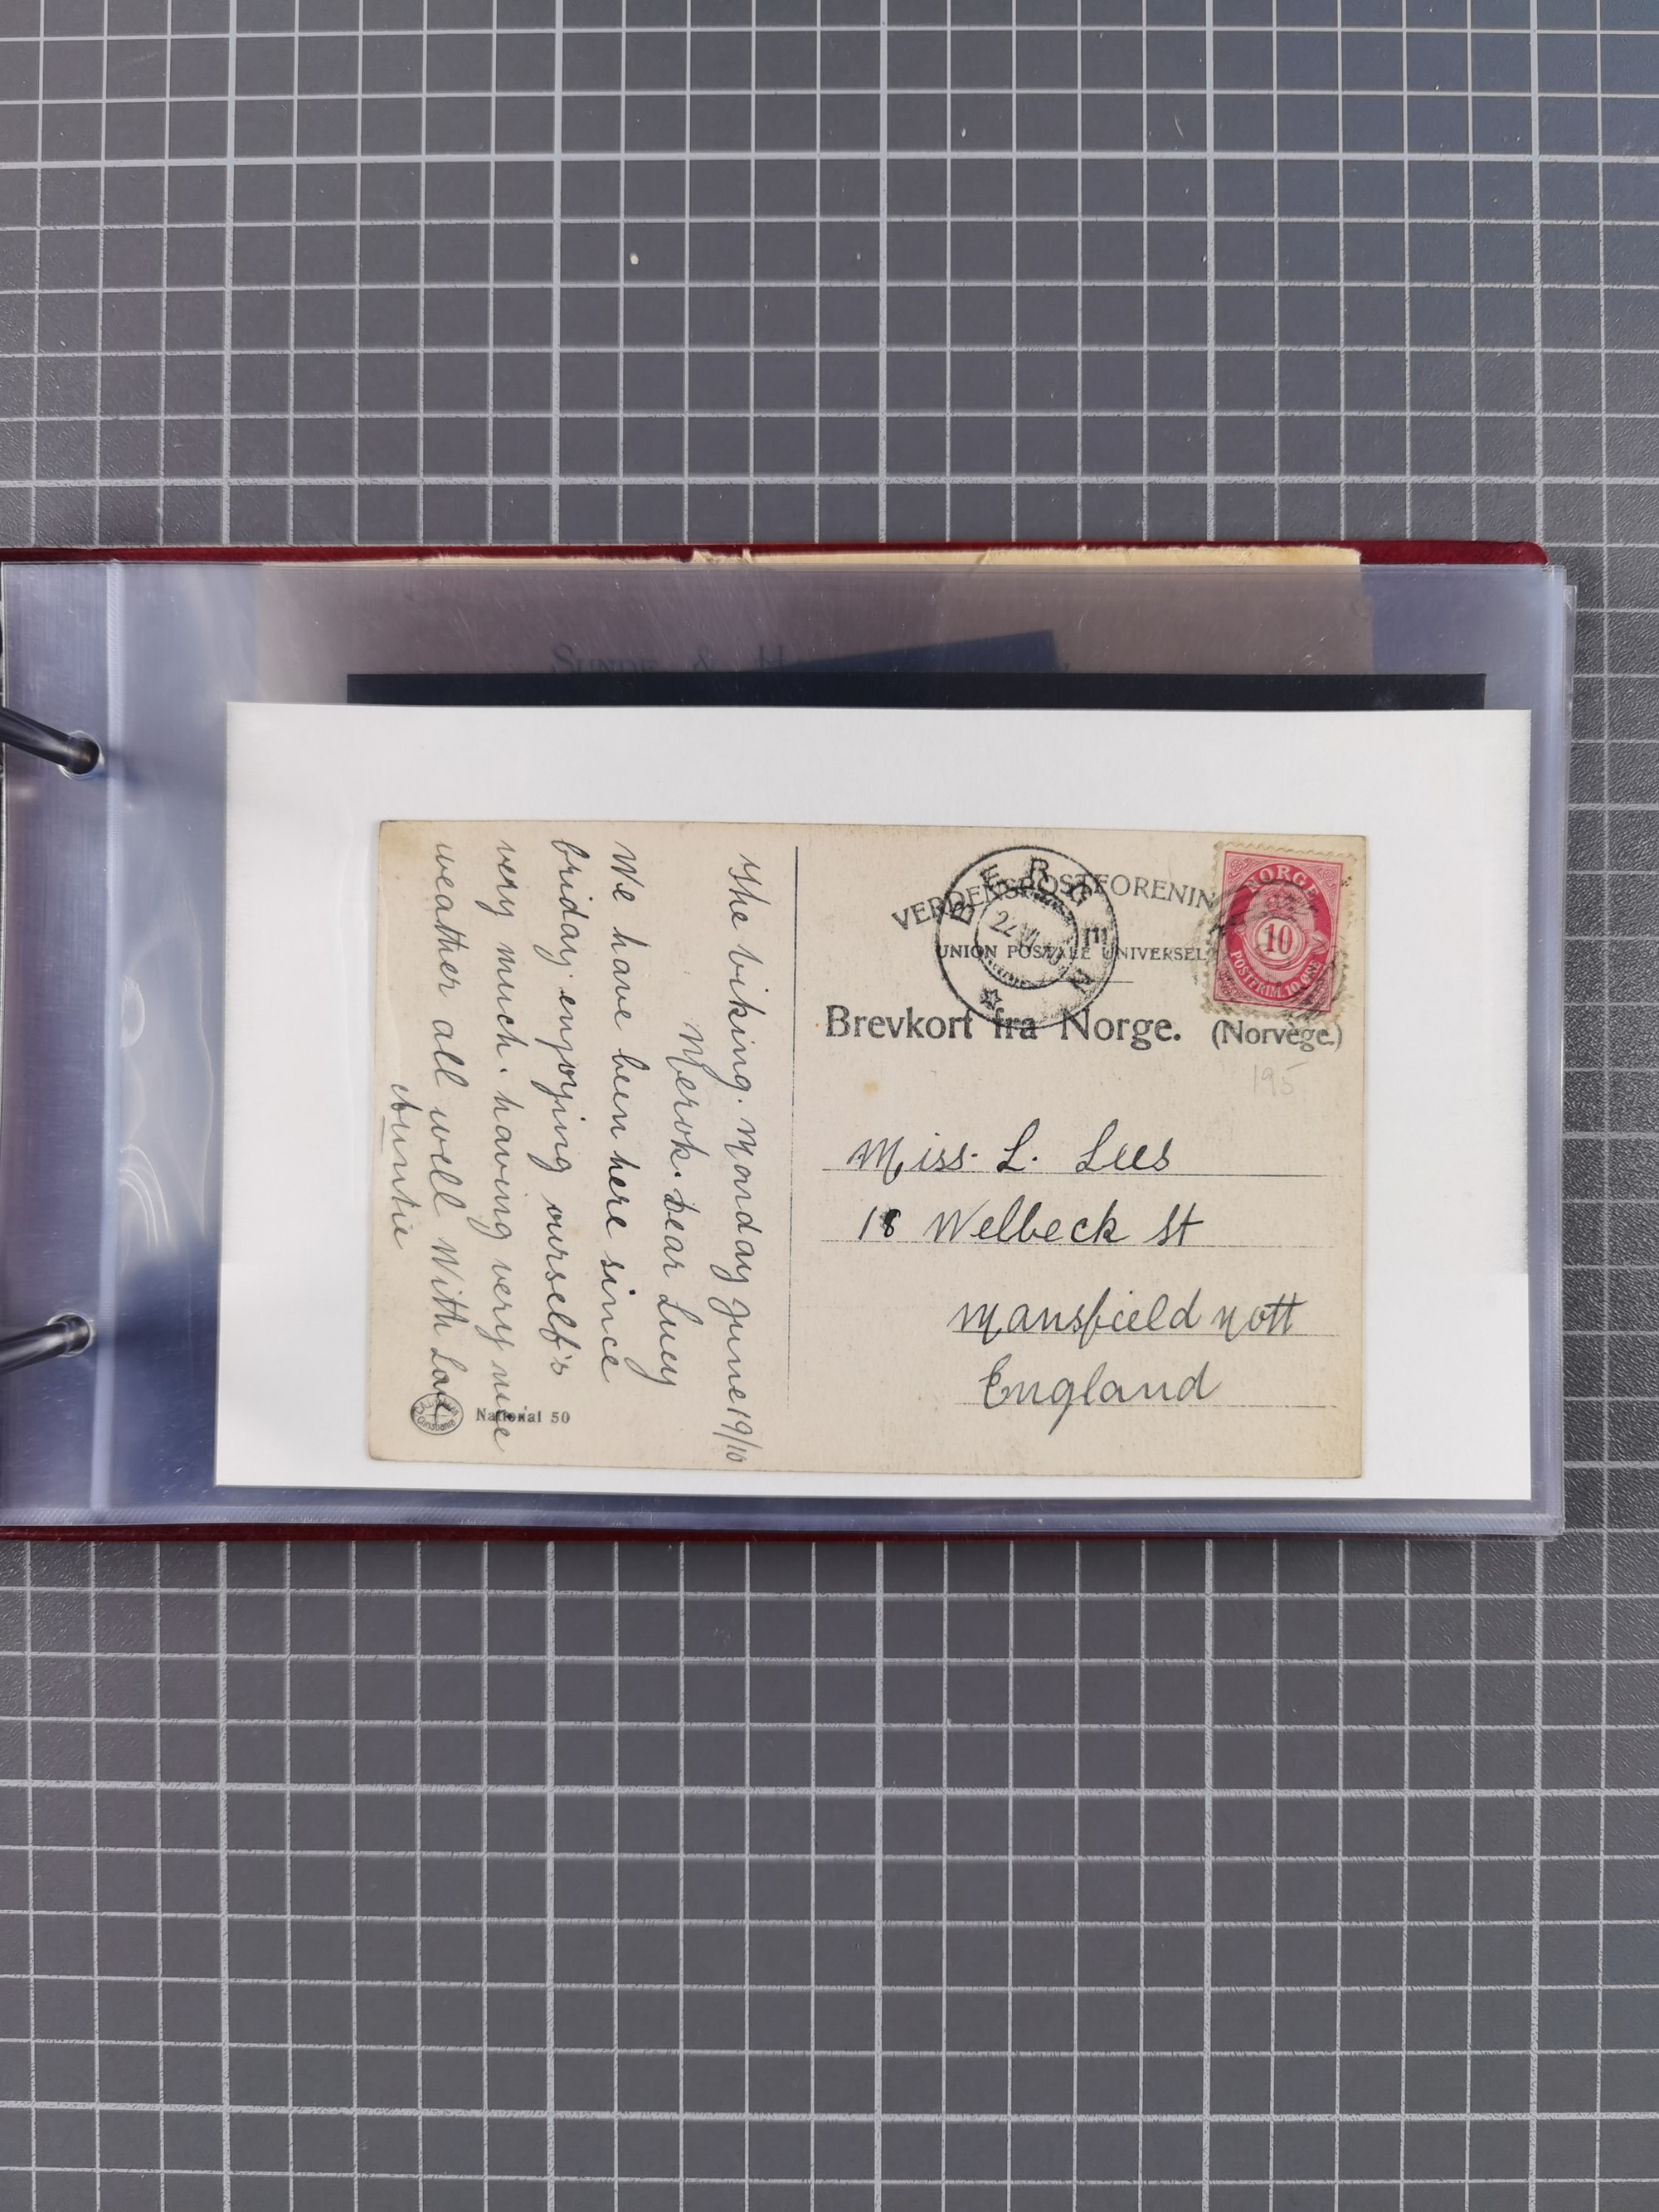 SUNDE & H
The Viking. Monday June 19/10
Merok. Dear Lucy
We have been here since
friday enjoying ourself's
very much. having very nice
weather all well With Love
Auntie
National 50
VERDENSPOSTFORENIN
UNION POSTALE UNIVERSELLE
BERGEN
Brevkort fra Norge. (Norvège.)
NORGE
10
POSTFRIM. 10 ØRE
195
Miss. L. Lees
18 Welbeck St
Mansfield Nott
England